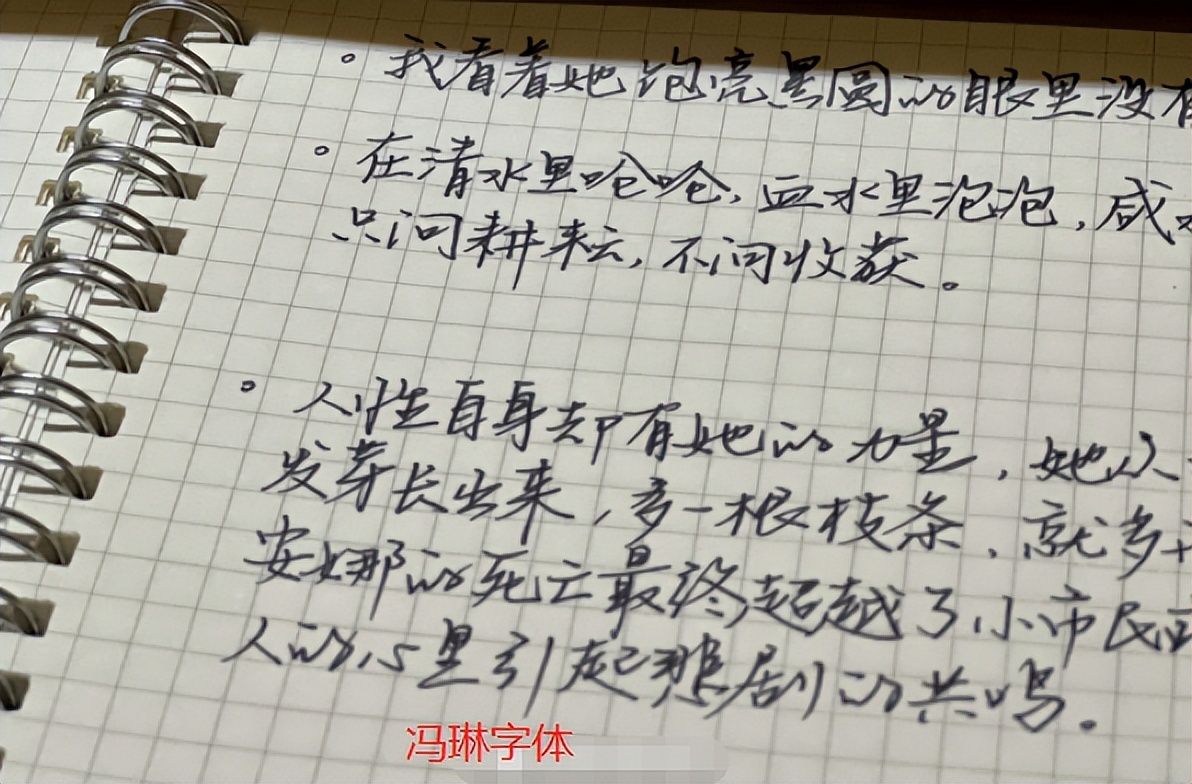 。我看着她饱亮黑圆的眼里没有
。在清水里呛呛,血水里泡泡,咸水
只问耕耘,不问收获。
。人性自身却有她的力量,她从
发芽长出来,多一根枝条,就多
安娜的死亡最终超越了小市民
人的心里引起悲剧的共鸣。
冯琳字体